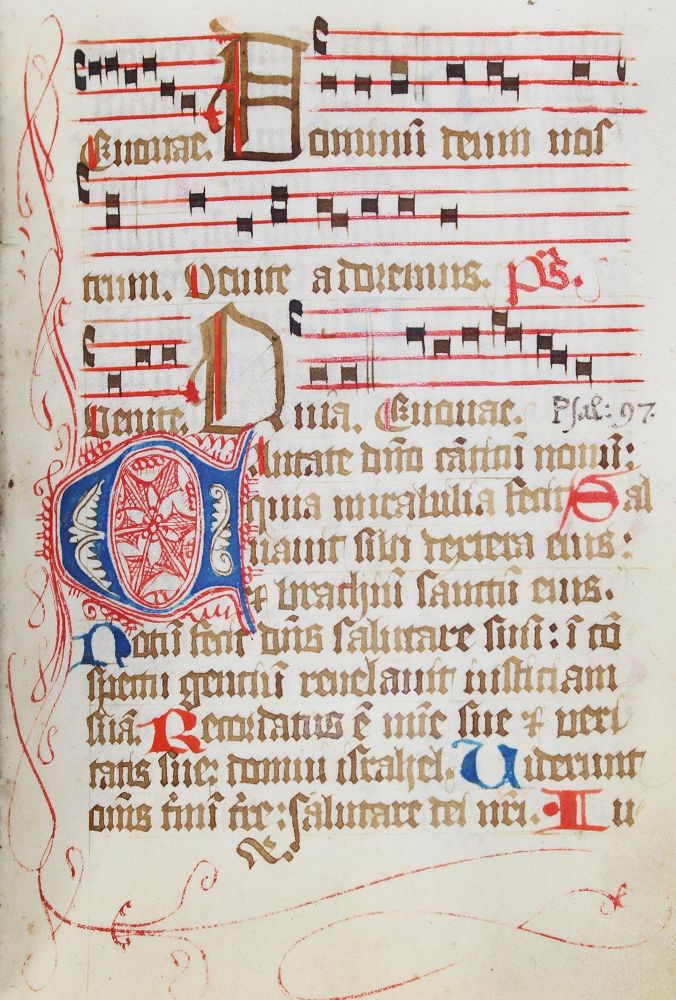 Euouae. Dominū deum nos
trum. Venite adoremus. ps.
Venite. Euouae. Psal: 97.
Cantate dn̄o cāticū nouū:
quia mirabilia fecit Sal
uauit sibi dextera eius:
⁊ brachiū sanctū eius.
Notū fecit dn̄s salutare suū: ī cō
spectu genciū reuelauit iusticiam
suā. Recordatus ē mīe sue ⁊ veri
tatis sue: domui israhel. Viderunt
om̄s t̄mī t̄re: salutare dei n̄ri. Iu